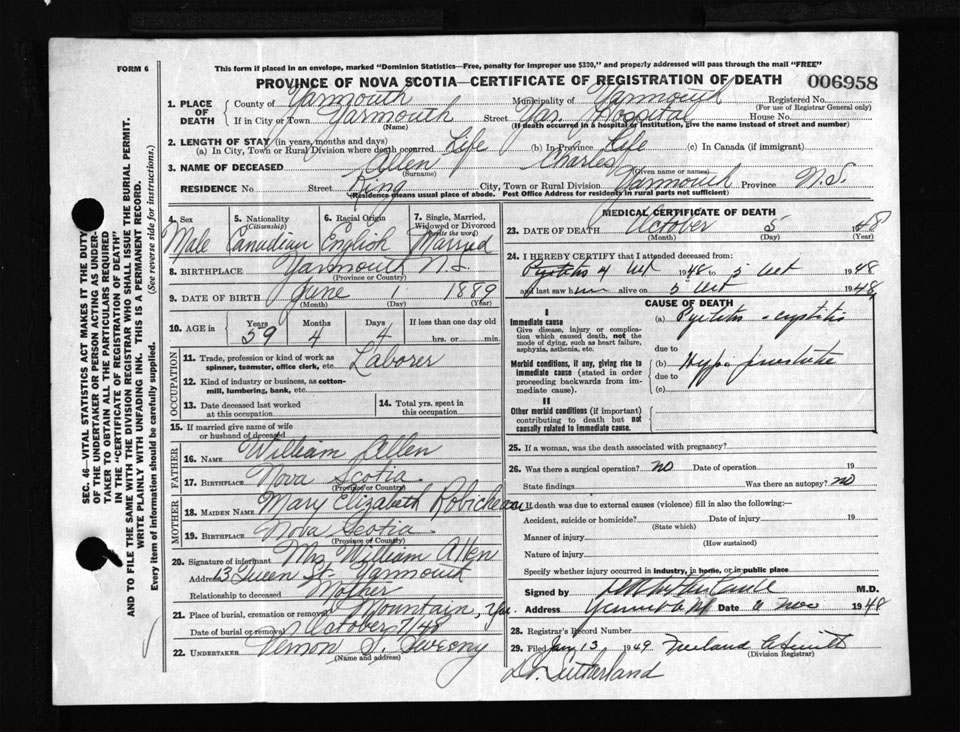 FORM 6
This form if placed in an envelope, marked "Dominion Statistics—Free, penalty for improper use $300," and properly addressed will pass through the mail "FREE"
PROVINCE OF NOVA SCOTIA—CERTIFICATE OF REGISTRATION OF DEATH 006958
1. PLACE OF DEATH County of Yarmouth Municipality of Yarmouth Registered No. (For use of Registrar General only)
If in City or Town Yarmouth (Name) Street Yar. Hospital House No.
(If death occurred in a hospital or institution, give the name instead of street and number)
2. LENGTH OF STAY (in years, months and days)
(a) In City, Town or Rural Division where death occurred Life (b) In Province Life (c) In Canada (if immigrant)
3. NAME OF DECEASED Allen (Surname) Charles (Given name or names)
RESIDENCE No Street King City, Town or Rural Division Yarmouth Province N.S.
(Residence means usual place of abode. Post Office Address for residents in rural parts not sufficient)
4. Sex Male
5. Nationality (Citizenship) Canadian
6. Racial Origin English
7. Single, Married, Widowed or Divorced (write the word) Married
8. BIRTHPLACE Yarmouth N.S. (Province or Country)
9. DATE OF BIRTH June (Month) 1 (Day) 1889 (Year)
10. AGE in Years 59 Months 4 Days 4 If less than one day old hrs. or min.
OCCUPATION
11. Trade, profession or kind of work as spinner, teamster, office clerk, etc. Laborer
12. Kind of industry or business, as cotton-mill, lumbering, bank, etc.
13. Date deceased last worked at this occupation
14. Total yrs. spent in this occupation
15. If married give name of wife or husband of deceased
FATHER
16. NAME William Allen
17. BIRTHPLACE Nova Scotia (Province or Country)
MOTHER
18. MAIDEN NAME Mary Elizabeth Robicheau
19. BIRTHPLACE Nova Scotia (Province or Country)
20. Signature of informant Mrs William Allen
Address 13 Queen St. Yarmouth
Relationship to deceased Mother
21. Place of burial, cremation or removal Mountain, Yar.
Date of burial or removal October 7/48
22. UNDERTAKER Vernon S. Sweeny
(Name and address)
MEDICAL CERTIFICATE OF DEATH
23. DATE OF DEATH October (Month) 5 (Day) 1948 (Year)
24. I HEREBY CERTIFY that I attended deceased from:
4 Oct 1948 to 5 Oct 1948
and last saw him alive on 5 Oct 1948
CAUSE OF DEATH
I
Immediate cause
Give disease, injury or complication which caused death, not the mode of dying, such as heart failure, asphyxia, asthenia, etc.
(a) cystitis
due to
Morbid conditions, if any, giving rise to immediate cause (stated in order proceeding backwards from immediate cause).
(b) Hyp. prostate
due to
(c)
II
Other morbid conditions (if important) contributing to death but not causally related to immediate cause.
25. If a woman, was the death associated with pregnancy?
26. Was there a surgical operation? no Date of operation 19
State findings Was there an autopsy? no
27. If death was due to external causes (violence) fill in also the following:—
Accident, suicide or homicide? (State which) Date of injury 19
Manner of injury (How sustained)
Nature of injury
Specify whether injury occurred in industry, in home, or in public place
Signed by M.D.
Address Date Nov 1948
28. Registrar's Record Number
29. Filed Jan 13 1949 (Division Registrar)
D. Sutherland
SEC. 46—VITAL STATISTICS ACT MAKES IT THE DUTY
OF THE UNDERTAKER OR PERSON ACTING AS UNDER-
TAKER TO OBTAIN ALL THE PARTICULARS REQUIRED
IN THE "CERTIFICATE OF REGISTRATION OF DEATH"
AND TO FILE THE SAME WITH THE DIVISION REGISTRAR WHO SHALL ISSUE THE BURIAL PERMIT.
WRITE PLAINLY WITH UNFADING INK. THIS IS A PERMANENT RECORD.
Every item of information should be carefully supplied. (See reverse side for instructions.)